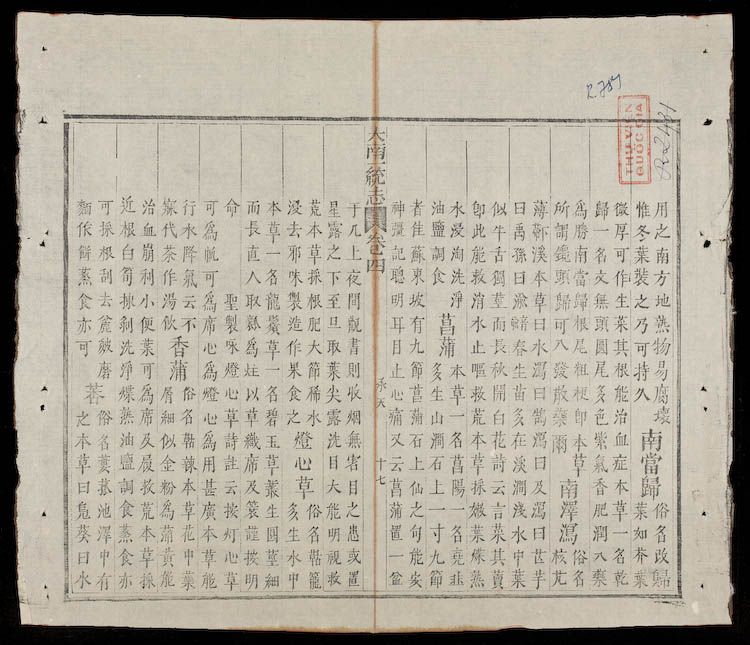 R.787
THƯ VIỆN
QUỐC GIA
用之南方地熱物易腐壞
惟冬葉裝之乃可持久
南當歸
俗名改歸
葉如芥葉
微厚可作生菜其根能治血症本草一名乾
歸一名文無頭圓尾多色紫氣香肥潤入藥
爲勝南當歸根尾粗梗卽本草
所謂鑱頭歸可入發散藥爾
南澤瀉
俗名
核芃
薄鄭溪本草曰水瀉曰鵠瀉曰及瀉曰芒芋
曰禹孫曰渝蕍春生苗多在溪澗淺水中葉
似牛舌獨莖而長秋開白花詩云言菜其藚
卽此能救消水止嘔救荒本草採嫩葉煤熟
水浸淘洗淨
油鹽調食
菖蒲
本草一名菖陽一名堯韭
多生山澗石上一寸九節
者佳蘇東坡有九節菖蒲石上仙之句能安
神强記聰明耳目止心痛又云菖蒲置一盆
大南一統志
卷四
承天
十七
于几上夜間觀書則收烟無害目之患或置
星露之下至旦取葉尖露洗目大能明視救
荒本草採根肥大節稀水
浸去邪味製造作果食之
燈心草
俗名鞊籠
多生水中
本草一名龍鬚草一名碧玉草叢生圓莖細
而長直人取瓤爲炷以草織席及簑謹按明
命
聖製咏燈心草詩註云按灯心草
可爲帆可爲席心爲燈心爲用甚廣本草能
行水降氣云不
寐代茶作湯飲
香蒲
俗名鞊諫本草花中藥
屑細似金粉爲蒲黃能
治血崩利小便葉可爲席及屨救荒本草採
近根白筍揀剝洗淨煤熟油鹽調食蒸食亦
可採根刮去麄皴磨
麵作餅蒸食亦可
荇
俗名葉菽池澤中有
之本草曰鳧葵曰水